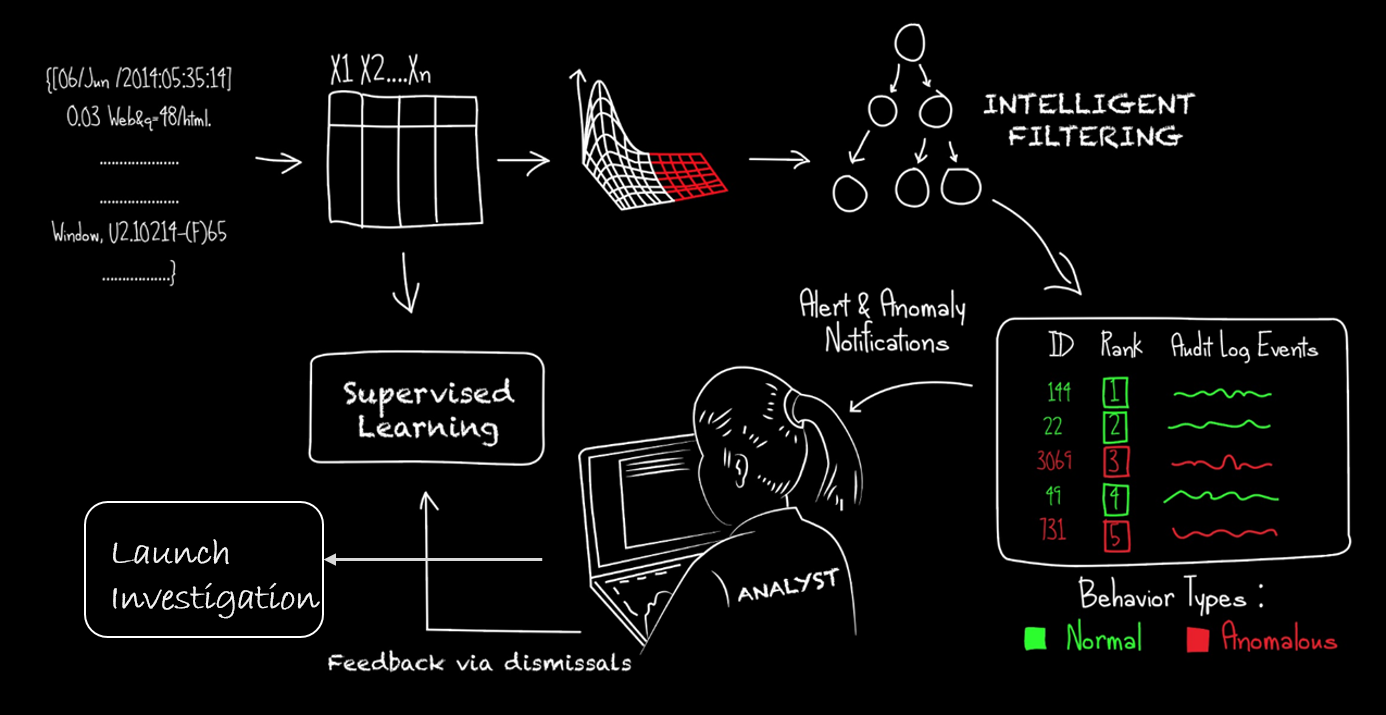 {[06/Jun /2014:05:35:14]
0.03 Web&q=48/html.
...................
...................
Window, U2.10214-(F)65
.................}
X1 X2....Xn
INTELLIGENT
FILTERING
Supervised
Learning
Launch
Investigation
Feedback via dismissals
ANALYST
Alert & Anomaly
Notifications
ID Rank Audit Log Events
144 1
22 2
3069 3
49 4
731 5
Behavior Types :
Normal Anomalous